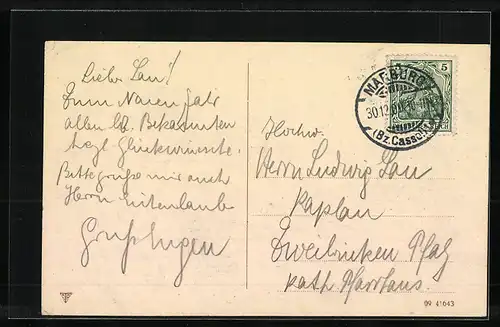 Lieber Lau!
Zum Neuen Jahr
allen lb. Bekannten
herzl. Glückwünsche.
Bitte grüße mir auch
Herrn
Gruß Eugen
Hochw.
Herrn Ludwig Lau
Kaplan
Zweibrücken Pfalz
Kath. Pfarrhaus.
MARBURG
30.12.
(Bz. Cassel)
5
99 41643